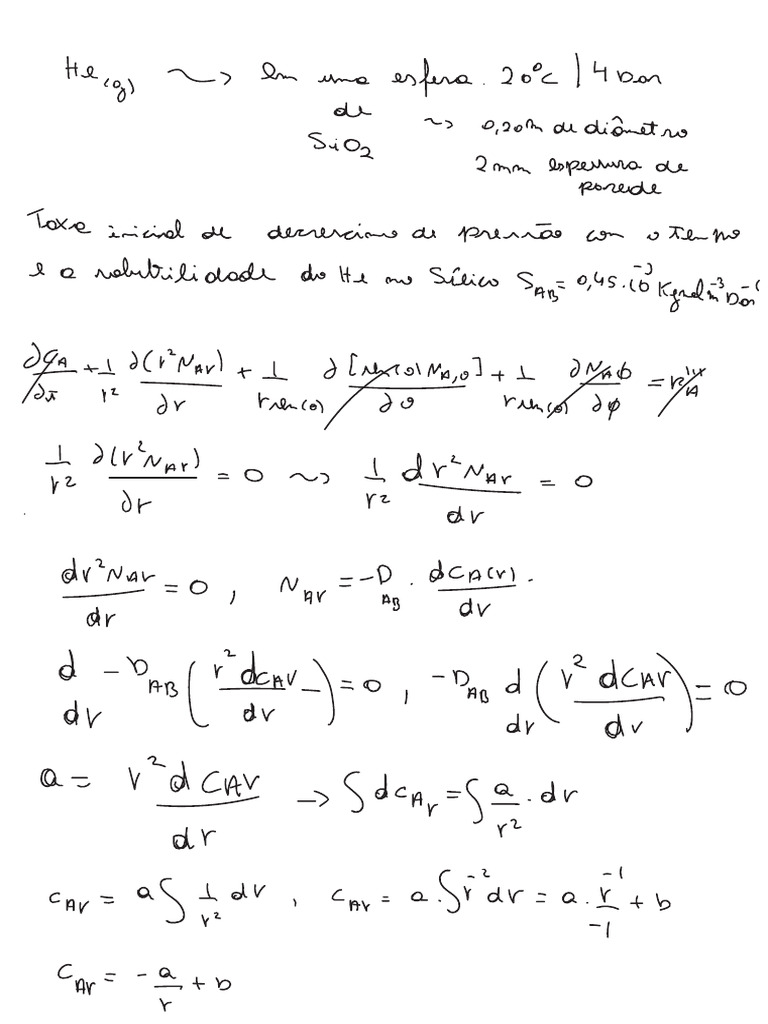 He(g) ~> Em uma esfera. 20°C | 4 bar
de ~> 0,20m de diâmetro
SiO2 2mm espessura de
parede
Taxa inicial de decréscimo de pressão com o tempo
e a solubilidade do He na Sílica S_AB = 0,45.10^-3 Kgmol m^-3 bar^-1
∂CA/∂t + 1/r² ∂(r²N_Ar)/∂r + 1/(r sen(θ)) ∂[sen(θ)N_A,θ]/∂θ + 1/(r sen(θ)) ∂N_Aϕ/∂ϕ = r'''_A
1/r² ∂(r²N_Ar)/∂r = 0 ~> 1/r² dr²N_Ar/dr = 0
dr²N_Ar/dr = 0 , N_Ar = -D_AB . dC_A(r)/dr .
d/dr -D_AB (r² dC_Ar/dr) = 0 , -D_AB d/dr (r² dC_Ar/dr) = 0
a = r² dC_Ar/dr → ∫dC_Ar = ∫a/r² . dr
C_Ar = a∫1/r² dr , C_Ar = a.∫r^-2 dr = a.r^-1/-1 + b
C_Ar = -a/r + b